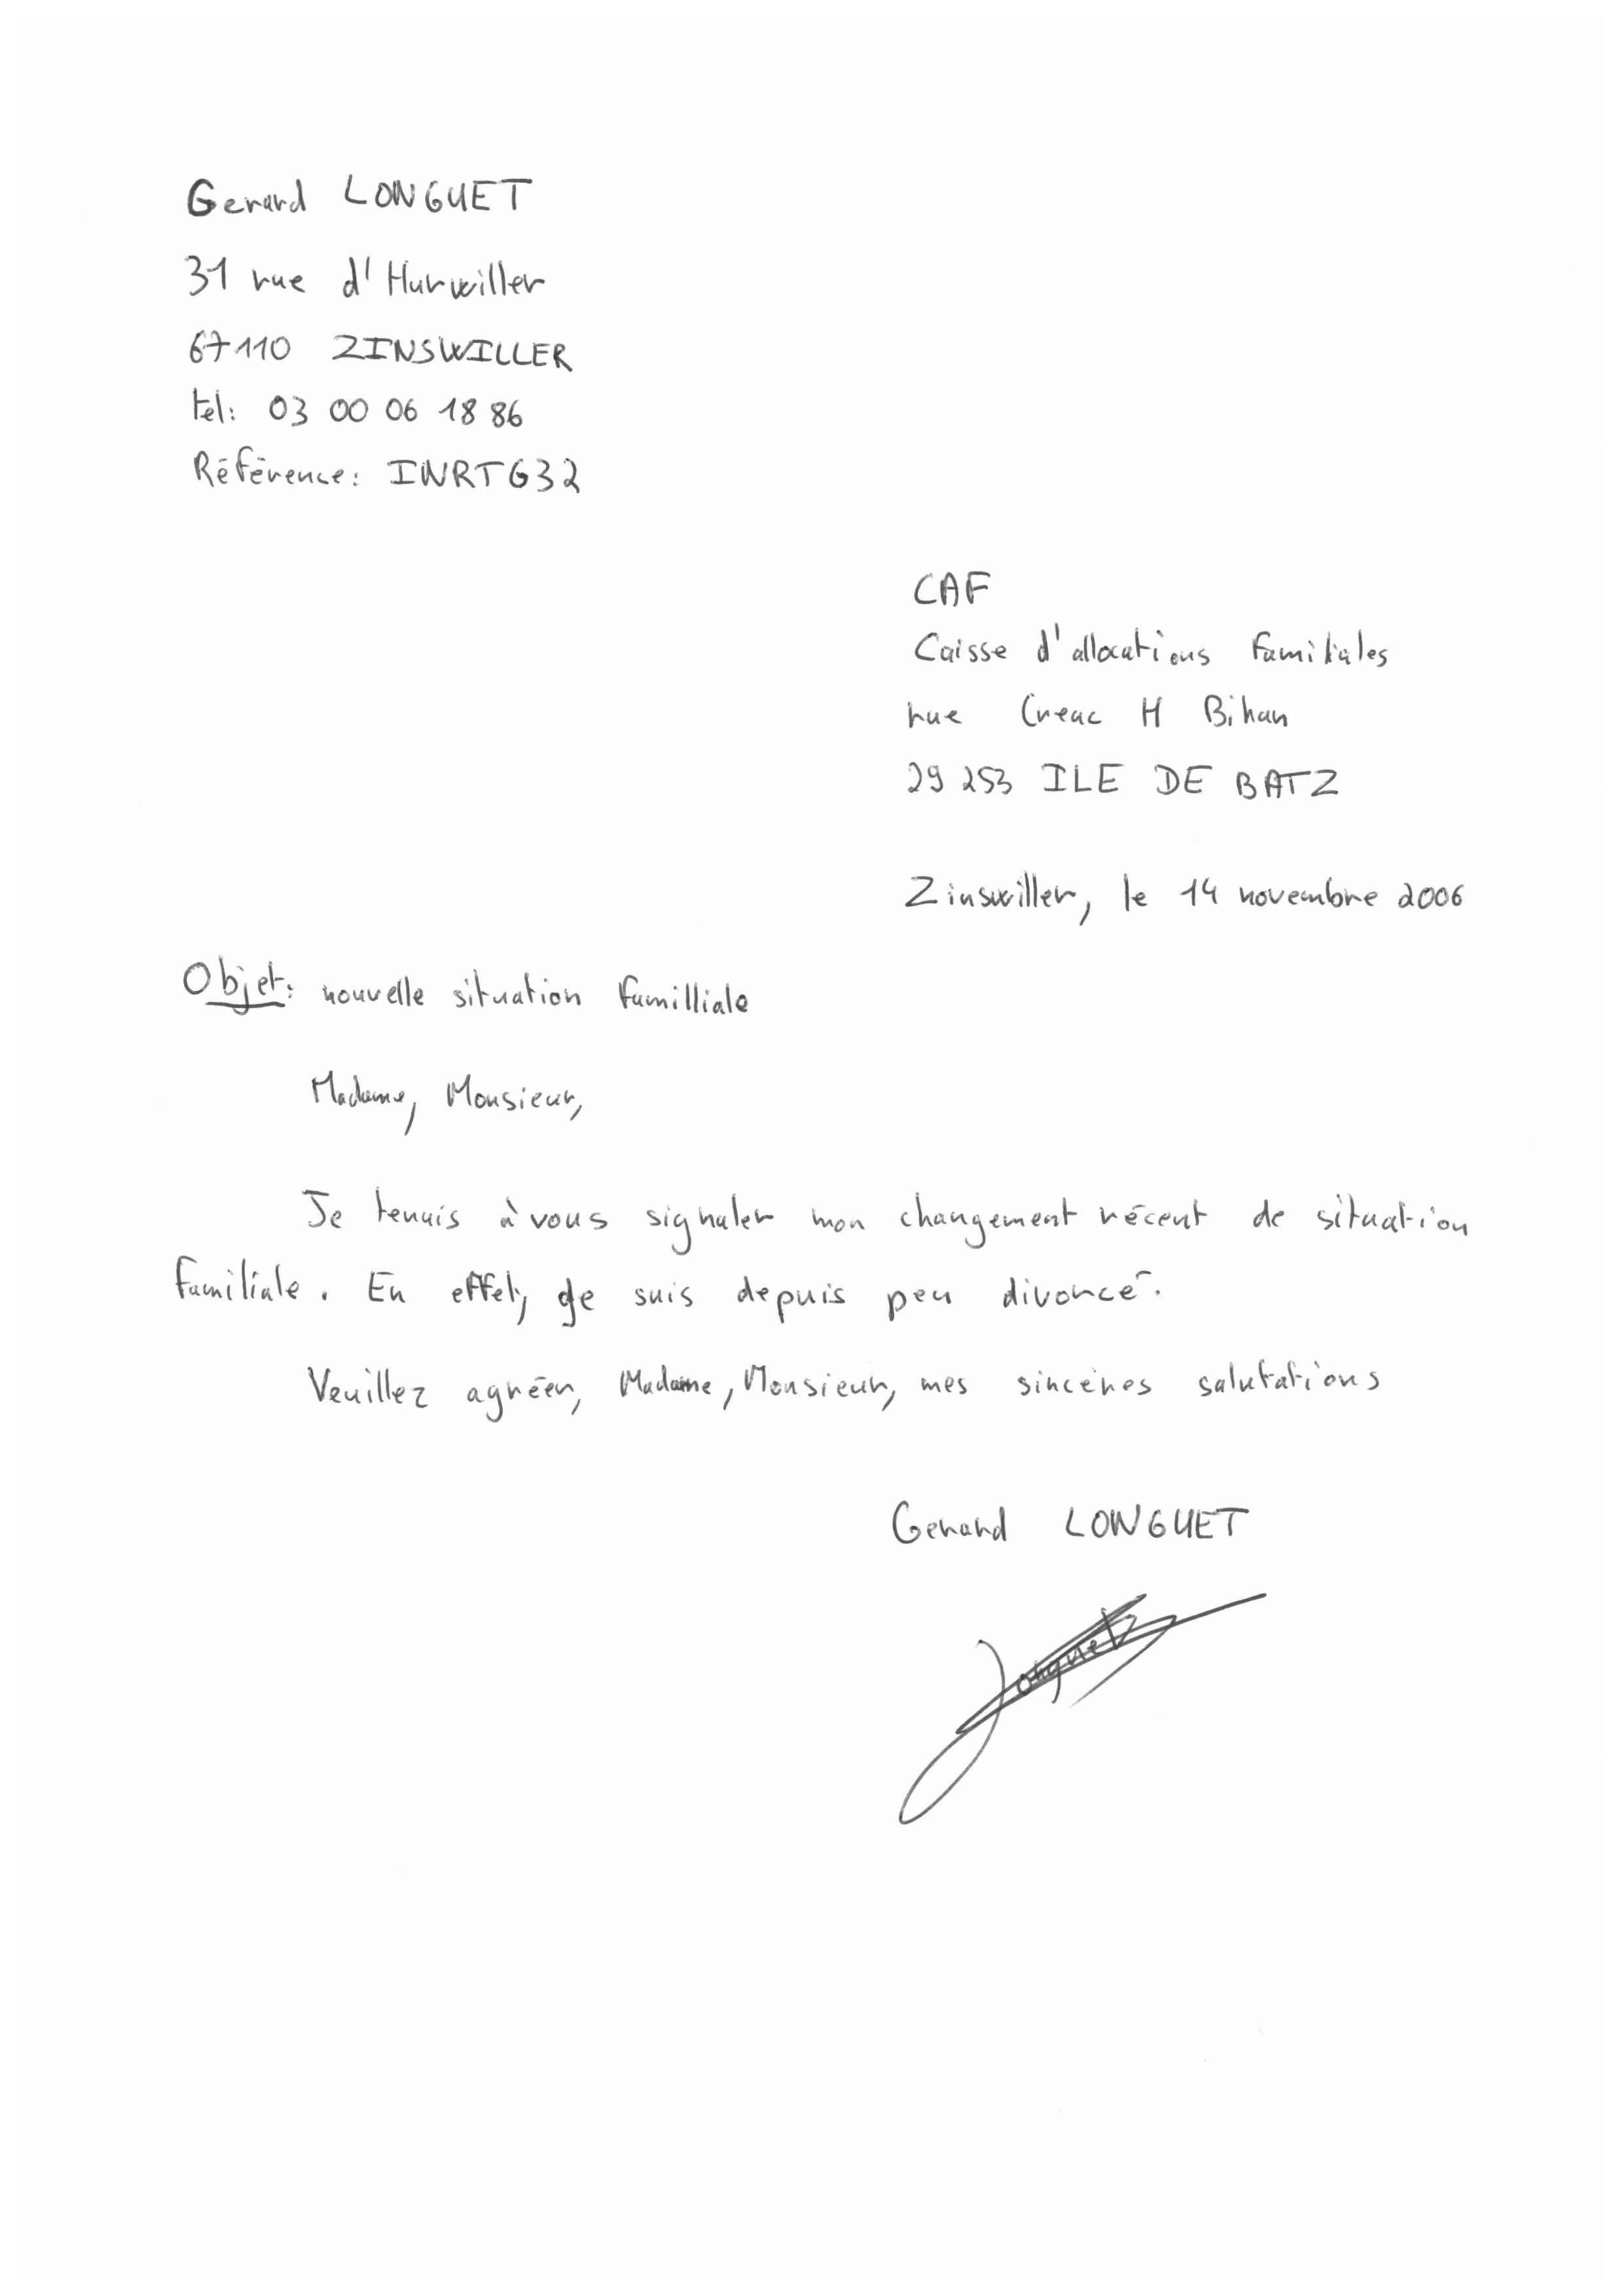 Gerard LONGUET
31 rue d'Hurwiller
67110 ZINSWILLER
tel: 03 00 06 18 86
Référence: INRTG32
CAF
Caisse d'allocations familiales
rue Creac H Bihan
29 253 ILE DE BATZ
Zinswiller, le 14 novembre 2006
Objet: nouvelle situation familliale
Madame, Monsieur,
Je tenais à vous signaler mon changement récent de situation
familiale. En effet, je suis depuis peu divorcé.
Veuillez agréer, Madame, Monsieur, mes sincères salutations
Gerard LONGUET
Longuet